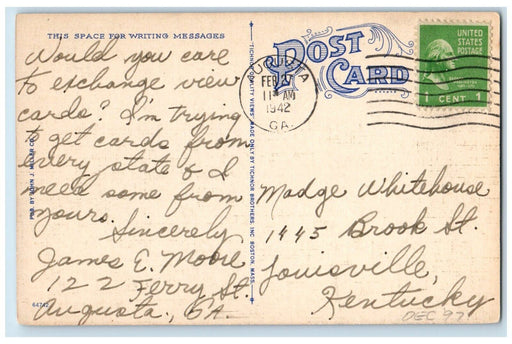 THIS SPACE FOR WRITING MESSAGES
Would you care
to exchange view
cards? I'm trying
to get cards from
every state & I
need some from
yours.
Sincerely
James E. Moore
122 Ferry St.
Augusta, GA.
64742
PUB. BY JOHN J. MILLER CO.
"TICHNOR QUALITY VIEWS" MADE ONLY BY TICHNOR BROTHERS, INC. BOSTON, MASS.
POST
CARD
AUGUSTA
FEB 27
11 AM
1942
GA.
UNITED
STATES
POSTAGE
1 CENT 1
Madge Whitehouse
1445 Brook St.
Louisville,
Kentucky
DEC 97